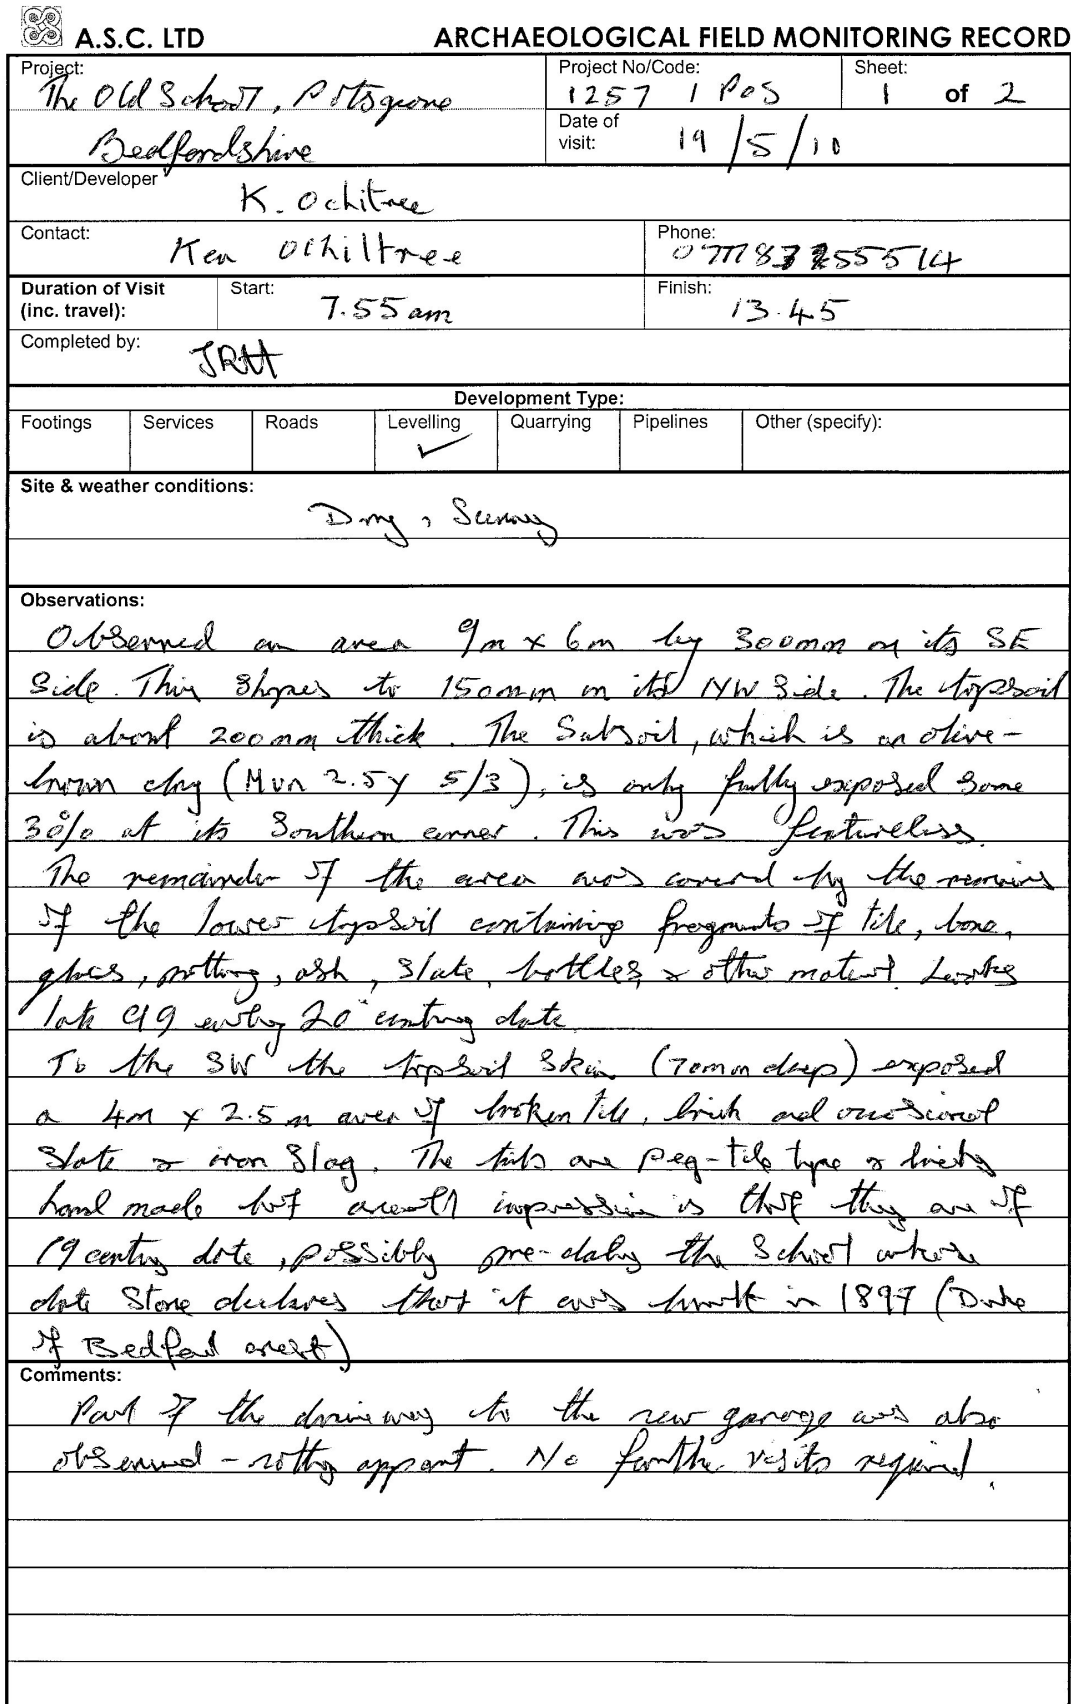 A.S.C. LTD ARCHAEOLOGICAL FIELD MONITORING RECORD
Project: The Old School, Potsgrove
Bedfordshire
Project No/Code: 1257 / POS
Sheet: 1 of 2
Date of visit: 19/5/10
Client/Developer K. Ochitree
Contact: Ken Ochiltree
Phone:
Duration of Visit (inc. travel): Start: 7.55am Finish: 13.45
Completed by: JRH
Development Type:
Footings Services Roads Levelling ✓ Quarrying Pipelines Other (specify):
Site & weather conditions:
Dry, Sunny
Observations:
Observed an area 9m x 6m by 300mm on its SE
Side. This slopes to 150mm on its NW Side. The topsoil
is about 200mm thick. The Subsoil, which is an olive-
brown clay (Mun 2.5Y 5/3), is only fully exposed some
30% at its Southern corner. This was featureless.
The remainder of the area was covered by the remains
of the lower topsoil containing fragments of tile, bone,
glass, pottery, ash, slate, bottles & other material. Looks
late C19 early 20th century date
To the SW the topsoil Skin (70mm deep) exposed
a 4m x 2.5m area of broken tile, brick and occasional
Slate & iron Slag. The tiles are peg-tile type & bricks
hand made but overall impression is that they are of
19 century date, possibly pre-dating the School whose
date Stone declares that it was built in 1897 (Duke
of Bedford crest)
Comments:
Part of the driveway to the new garage was also
observed - nothing apparent. No further visits required.